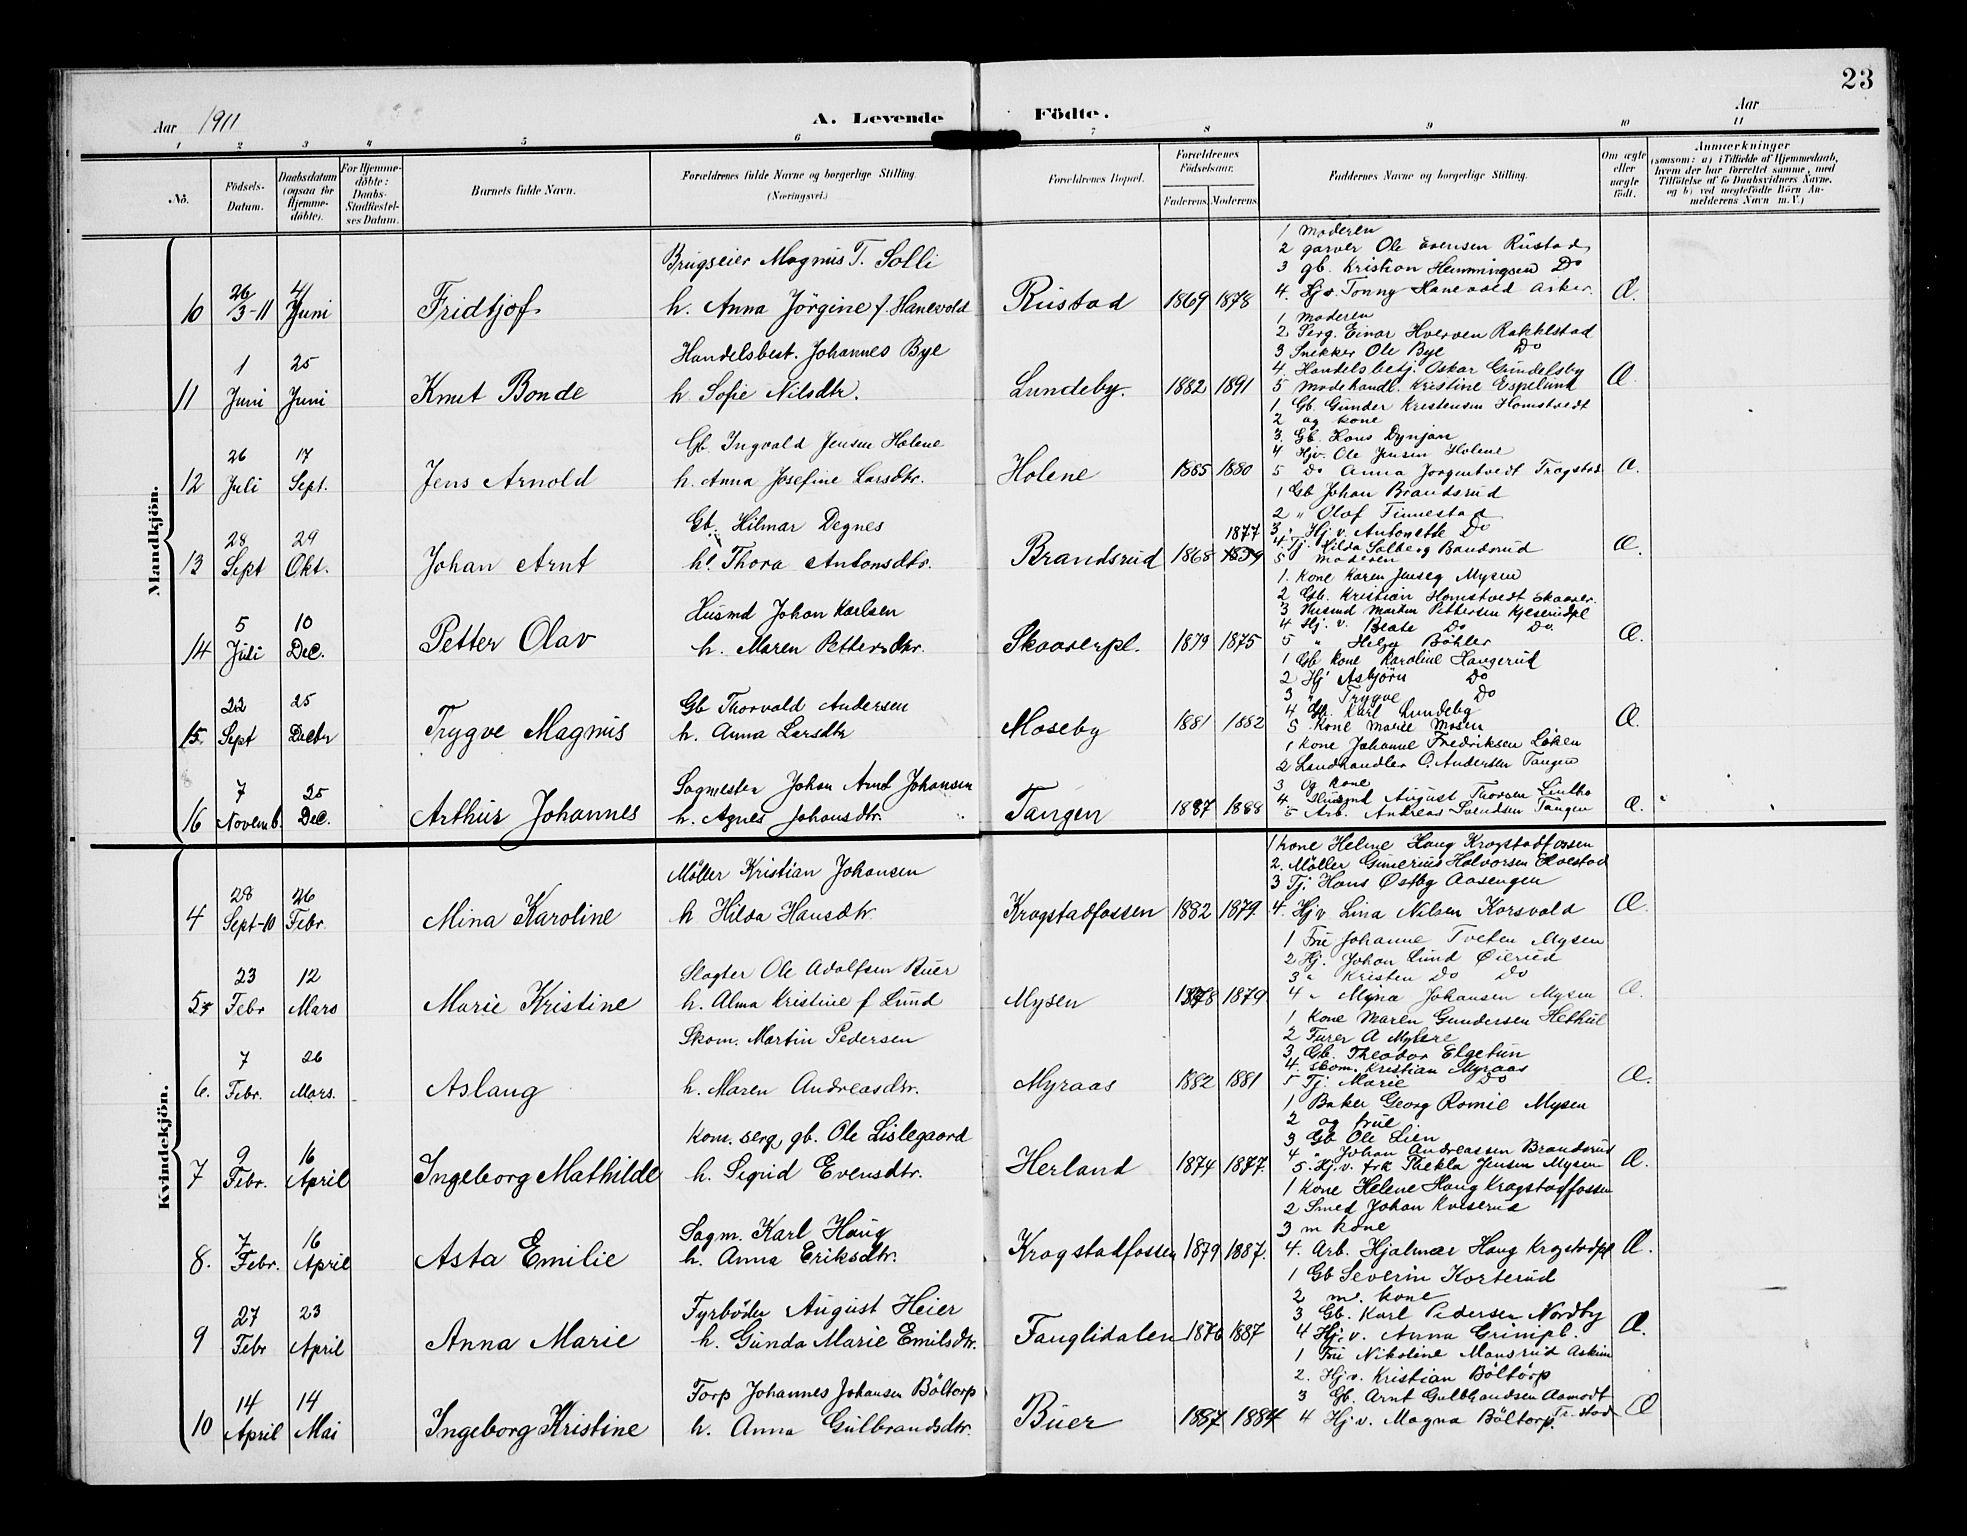 23
Aar 1911
A. Levende Födte.
Aar
1 2 3 4 5 6 7 8 9 10 11
No.
Födsels-Datum.
Daabsdatum (ogsaa for Hjemme-döbte).
For Hjemme-döbte: Daabs-Stadfæstel-ses Datum.
Barnets fulde Navn.
Forældrenes fulde Navne og borgerlige Stilling. (Næringsvei.)
Forældrenes Bopæl.
Forældrenes Födselsaar.
Faderens. Moderens.
Faddernes Navne og borgerlige Stilling.
Om ægte eller uægte födt.
Anmærkninger
(saasom: a) i Tilfælde af Hjemmedaab, hvem der har forrettet samme, med Tilföielse af to Daabsvidners Navne, og b) ved uægtefödte Börn An-melderens Navn m. V.)
Mandkjön.
10 26/3-11 4/Juni Fridtjof
Brugseier Magnus T. Solli
h. Anna Jörgine f. Hanevold
Rustad 1869 1878
1 Moderen
2 garver Ole Evensen Rustad
3 gb. Kristian Hemmingsen Do
4. Hjv. Tonny Hanevold Asker. Æ.
11 1 Juni 25 Juni Knut Bonde
Handelsbest. Johannes Bye
h. Sofie Nilsdtr.
Lundeby. 1882 1891
1 Moderen
2. Serg. Einar Hverven Rakkestad
3 Snekker Ole Bye Do
4. Handelsbetj. Oskar Gundelsby
5 Modehandl. Kristine Espelund Æ.
12 26 Juli 17 Sept. Jens Arnold
Gb. Ingvald Jensen Holene
h. Anna Josefine Larsdtr.
Holene 1885 1880
1 Gb. Gunder Kristensen Homstvedt
2 og kone
3. Gb. Hans Dynjan
4 Hjv. Ole Jensen Holene
5 Do Anna Jorgentvedt Trøgstad Æ.
13 28 Sept 29 Okt. Johan Arnt
Gb. Hilmar Degnes
h. Thora Antonsdtr.
Brandsrud 1868 1877
1 Gb Johan Brandsrud
2 " Olaf Finnestad
3 " Hj v. Antonette Do
4. Tj. Hilda Solberg Bandsrud
5 Moderen Æ.
14 5 Juli 10 Dec. Petter Olav
Husmd Johan Karlsen
h. Maren Pettersdtr.
Skaarerpl. 1879 1875
1. Kone Karen Jenseg Mysen
2 Gb. Kristian Homstvedt Skaarer.
3 Husmd Martin Pettersen Kjeserudpl
4 Hj. v. Beate Do Do.
5 " Helga Böhler Æ.
15. 22 Sept 25 Decbr Trygve Magnus
Gb Thorvald Andersen
h. Anna Larsdtr
Moseby 1881 1882
1 Gb kone Karoline Haugerud
2 Hj Asbjörn Do
3 " Trygve Do
4 Gb. Karl Lundeby
5 Kone Marie Mosen Æ.
16 7 Novemb. 25 Dec. Arthur Johannes
Sagmester Johan Arnt Johansen
h. Agnes Johansdtr.
Tangen 1887 1888
1 Kone Johanne Fredriksen Löken
2 Landhandler O. Andersen Tangen
3 Og kone
4. Husmd August Thorsen Lintho
5 Arb. Andreas Svendsen Tangen Æ.
Kvindekjön.
4 28 Sept-10 26 Febr. Mina Karoline
Möller Kristian Johansen
h Hilda Hansdtr.
Krogstadfossen 1882 1879.
1 Kone Helene Haug Krogstadfossen
2. Möller Gunerius Halvorsen Elvestad
3 Tj. Hans Østby Aasengen
4. Hjv Lina Nilsen Korsvold Æ.
5 23 Febr 12 Mars Marie Kristine
Slagter Ole Adolfsen Buer
h. Alma Kristine f Lund
Mysen 1878 1879
1 Fru Johanne Tveten Mysen
2 Hj. Johan Lund Øierud
3 " Kristen Do Do
4 " Myna Johansen Mysen Æ.
6. 7 Febr. 26 Mars. Aslaug
Skom. Martin Pedersen
h. Maren Andreasdtr.
Myraas 1882 1881
1 Kone Maren Gundersen Hethul
2 Furer A Myhre
3 Gb. Theodor Elgetun
4. Skom. Kristian Myraas
5 Tj. Marie Do Æ.
7 9 Febr. 16 April Ingeborg Mathilde
Kom. serg, gb. Ole Lislegaard
h. Sigrid Evensdtr.
Herland 1874 1877.
1 Baker Georg Romie Mysen
2 og frue
3 Gb Ole Lien
4 " Johan Andreassen Brandsrud
5. Hj. v. frk Thekla Jensen Mysen Æ.
8. 7 Febr. 16 April Asta Emilie
Sagm. Karl Haug
h. Anna Eriksdtr.
Krogstadfossen 1879 1887.
1 Kone Helene Haug Krogstadfossen
2 Smed Johan Kviserud
3 m kone
4. Arb. Hjalmar Haug Krogstadpl Æ.
9 27 Febr 23 April Anna Marie
Fyrböder August Heier
h. Gunda Marie Emilsdtr.
Fanglidalen 1876 1887
1 Gb Severin Korterud
2 m. kone
3 Gb. Karl Pedersen Nordby
4 Hj. v. Anna Grimpl. Æ.
10 14 April 14 Mai Ingeborg Kristine
Torp Johannes Johansen Böltorp
h. Anna Gulbrandsdtr.
Buer 1887 1884
1 Fru Nikoline Monsrud Askim
2. Hjv. Kristian Böltorp
3 Gb. Arnt Gulbrandsen Aamodt
4 Hj. v. Magna Böltorp. Tr. stad Æ